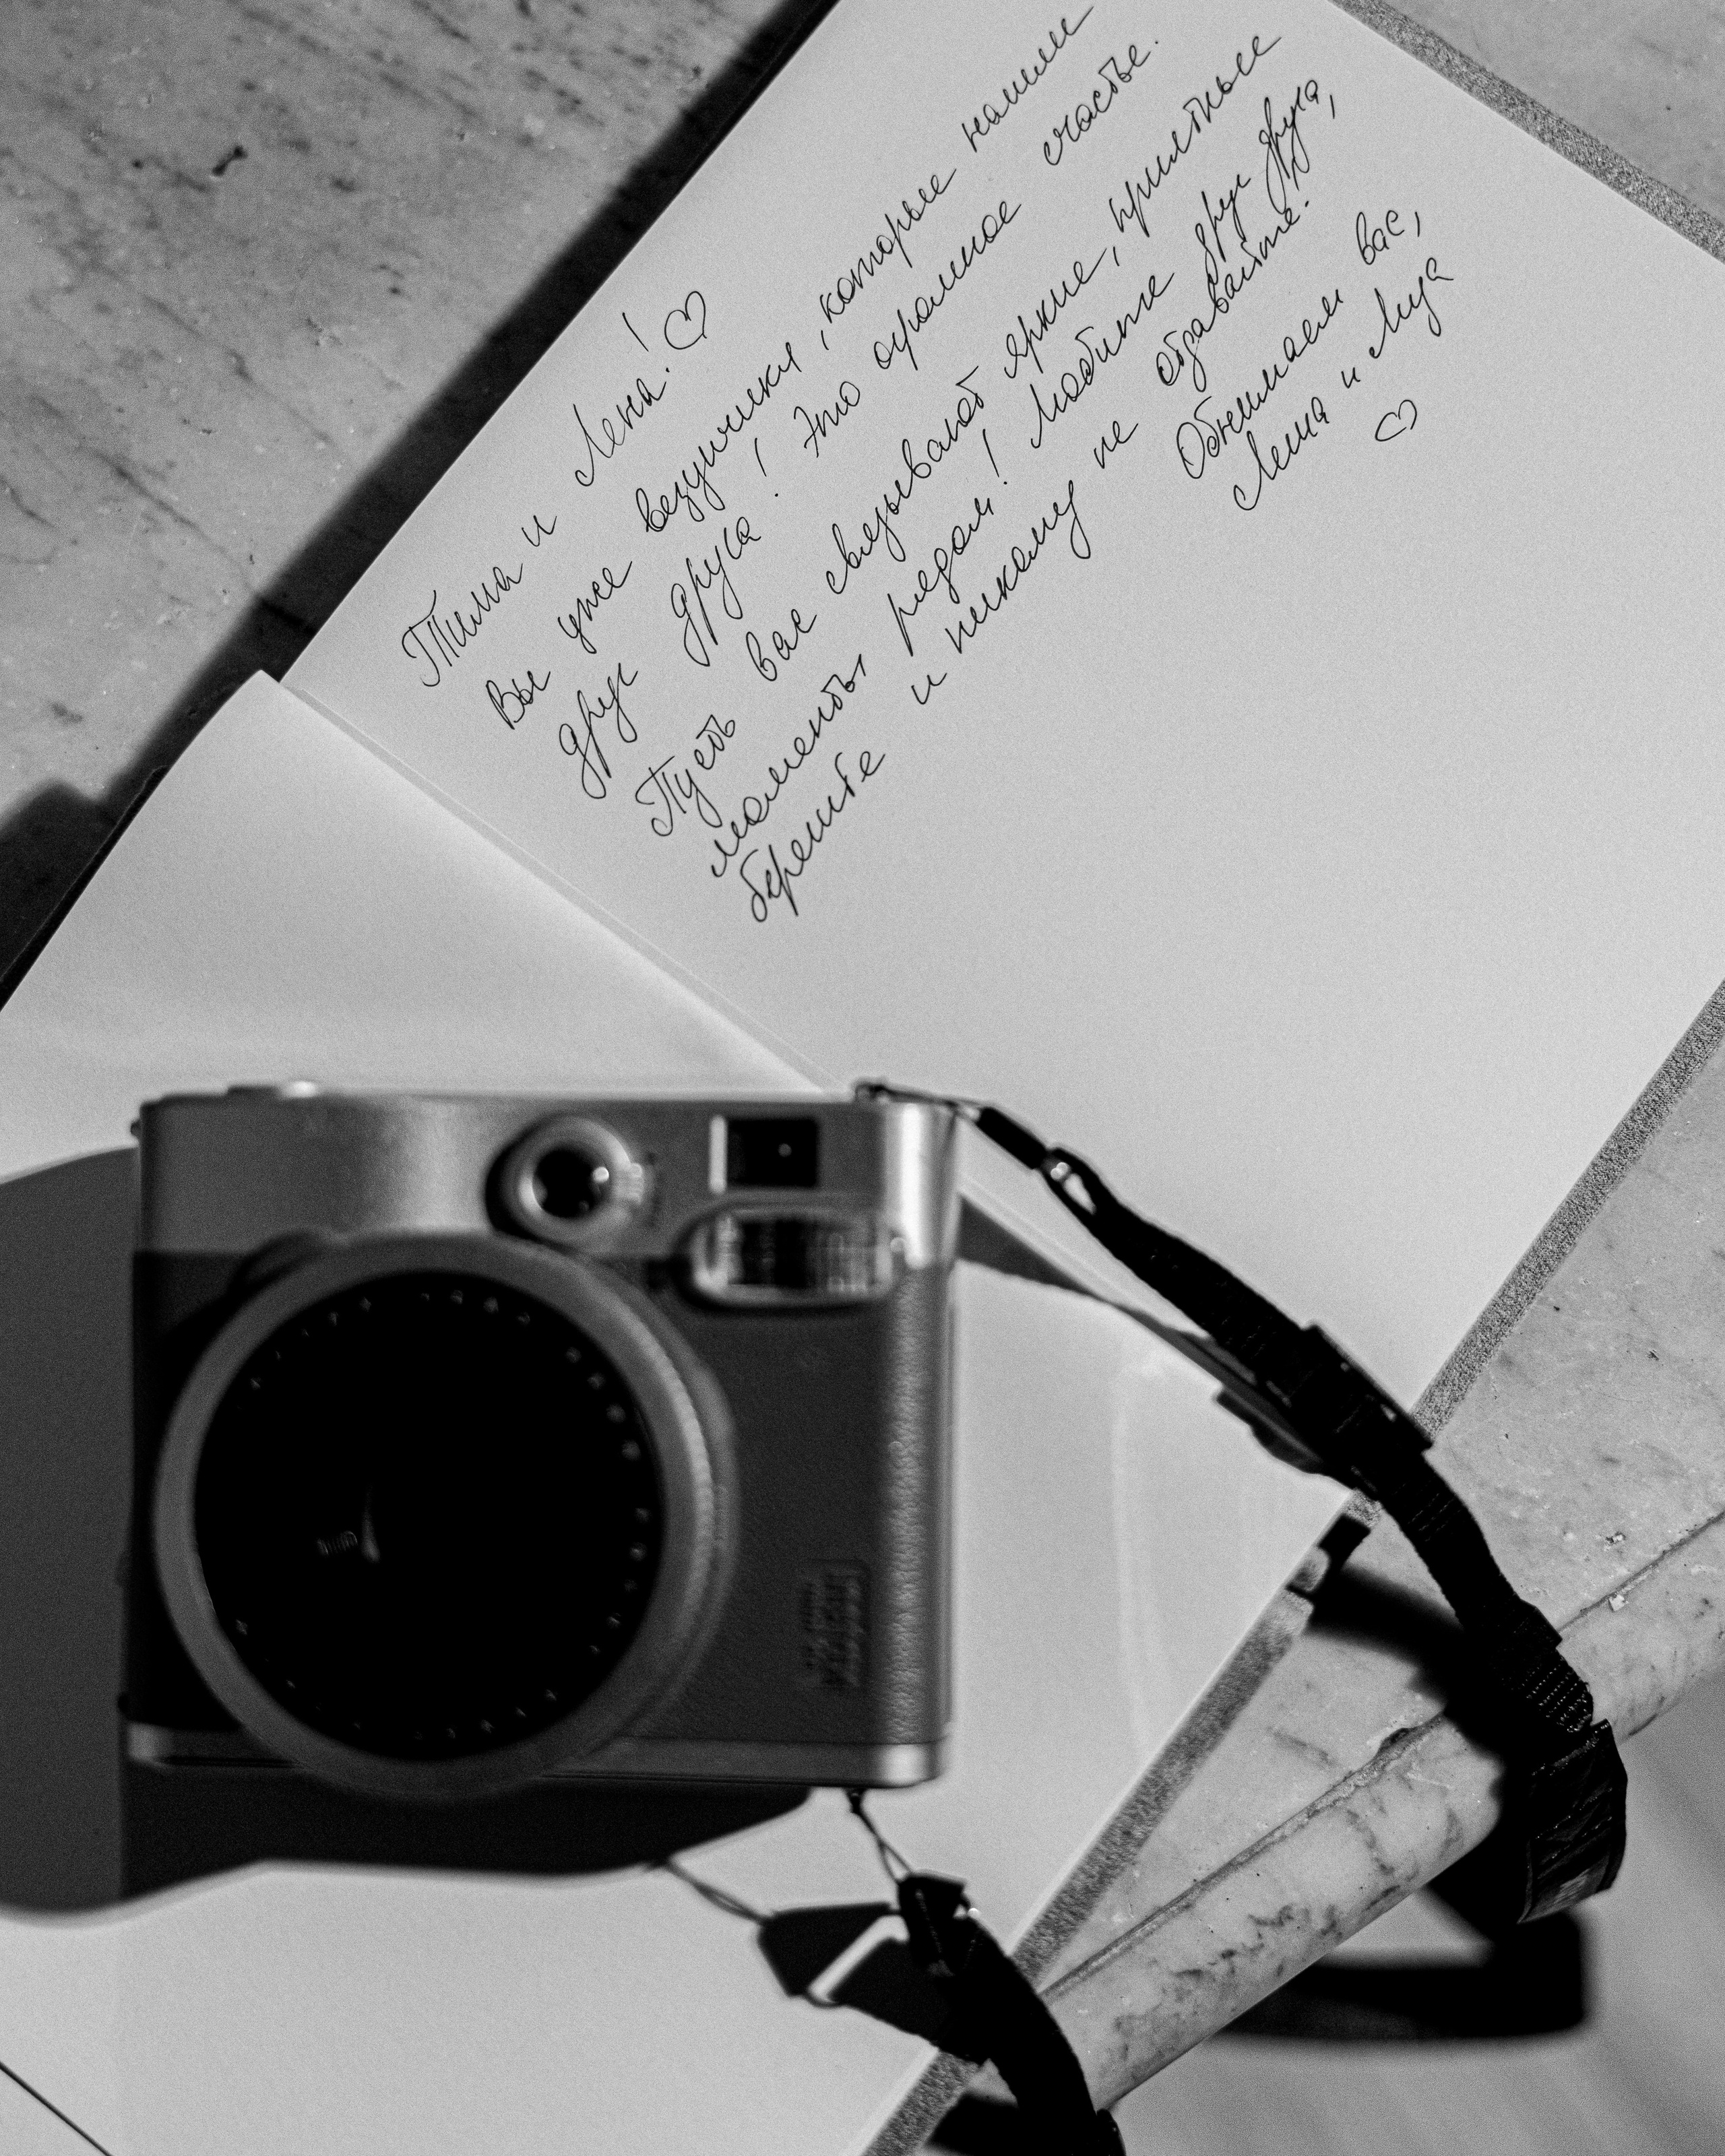 Тима и Лена! ♡
Вы уже везунчики, которые нашли
друг друга! Это огромное счастье.
Пусть вас связывают яркие, приятные
моменты рядом! Любите друг друга,
берегите и никому не отдавайте.
Обнимаем вас,
Леша и Луза
♡
instax